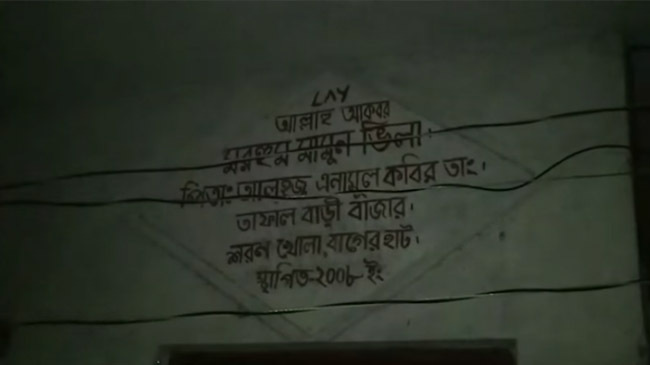 LAY
আল্লাহু আকবর
মরহুম মামুন ভিলা।
পিতাঃ আলহাজ্ব এনামুল কবির তাং।
তাফাল বাড়ী বাজার।
শরন খোলা, বাগের হাট।
স্থাপিত-২০০৮ ইং